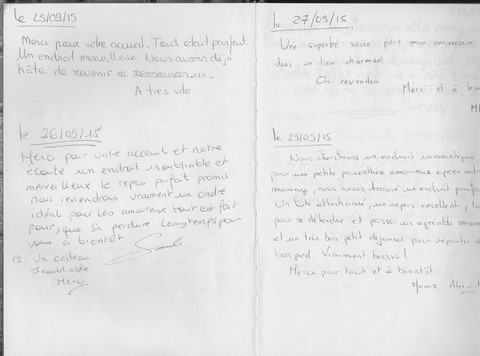 le 25/09/15
Merci pour votre accueil. Tout était parfait.
Un endroit merveilleux. Nous avons déjà
hâte de revenir se ressourcer
A très vite.
le 26/09/15
Merci pour votre acceuil et notre
écoute un endroit inoubliable et
merveilleux le repas parfait promis
nous reviendrons vraiment un cadre
idéal pour les amoureux tout est fait
pour que sa perdure longtemps
vous à bientôt
PS: Un cadeau
Inoubliable
Merci
le 27/09/15
Une superbe soirée pour mon anniversaire
dans un lieu charmant
On reviendra
Merci et à
le 29/09/15
Nous cherchions un endroit romantique
pour une petite parenthèse amoureuse après notre
mariage, nous avons trouvé un endroit
Un hôte attentionné, un repas excellent,
pour se détendre et passer un agréable
et un très bon petit déjeuner pour repartir
bon pied. Vraiment bravo!
Merci pour tout et à bientôt